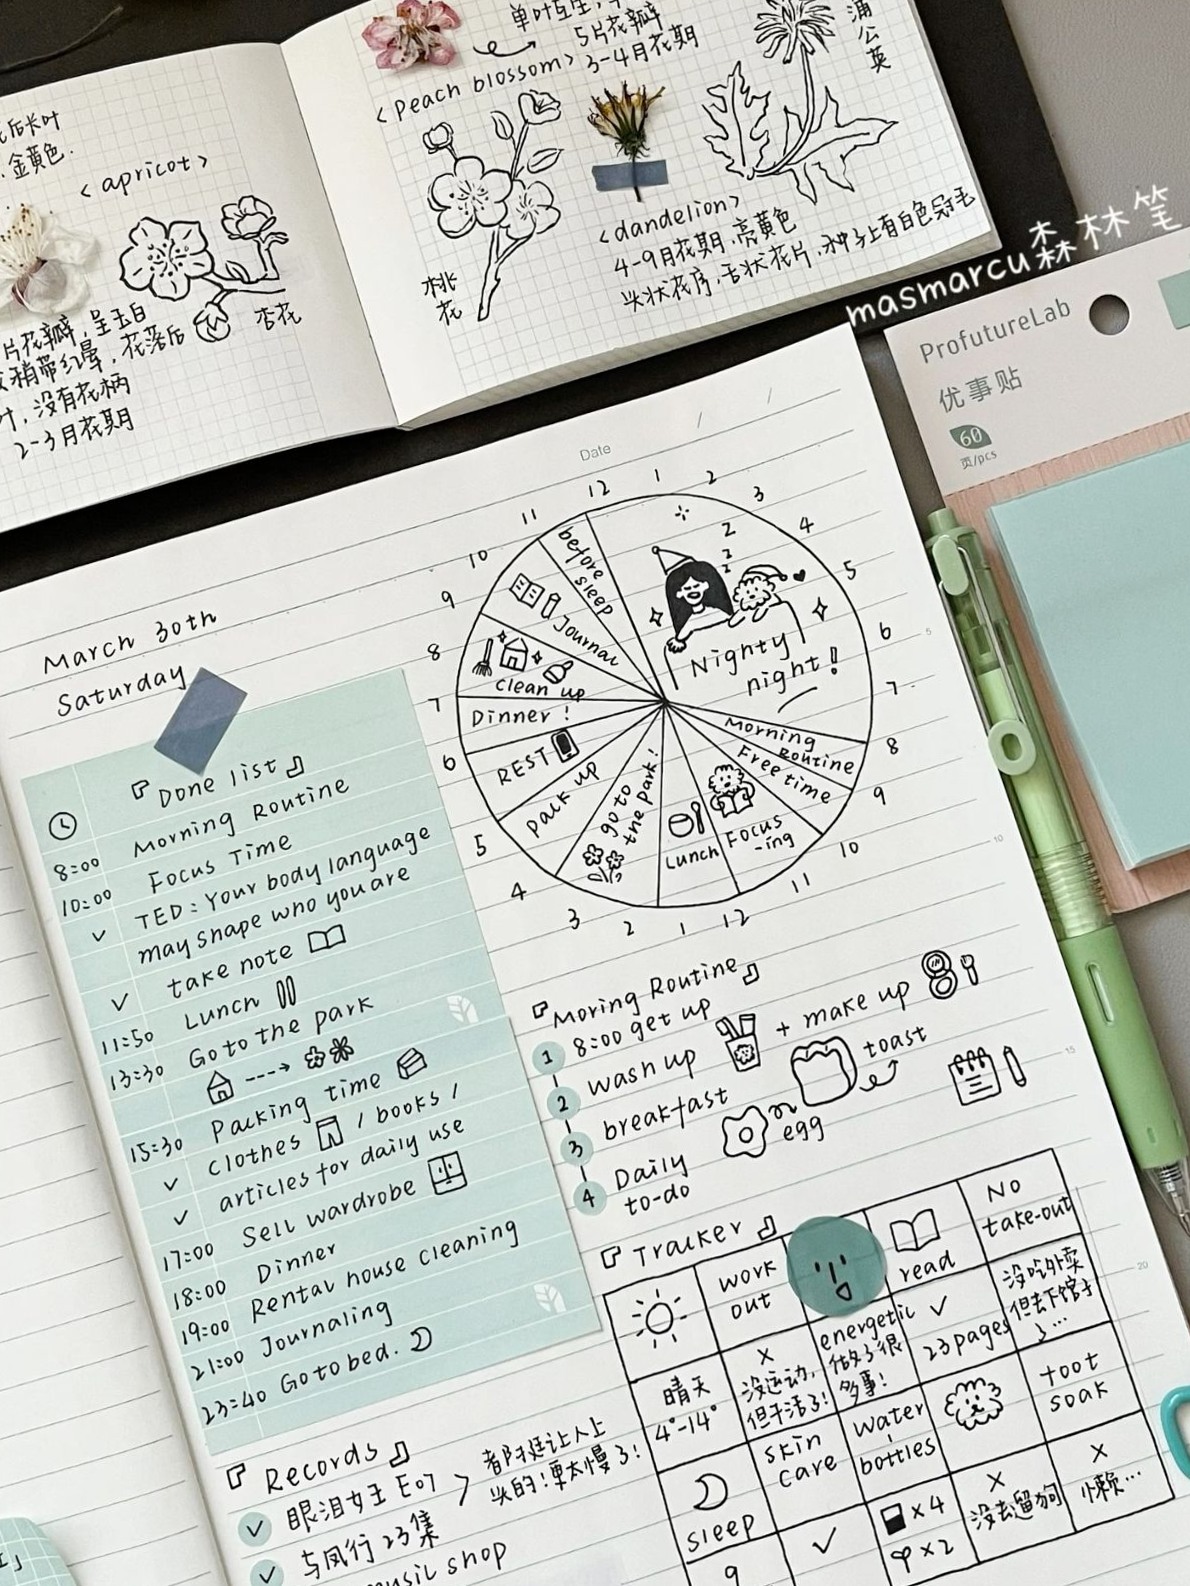 后长叶
金黄色.
<apricot>
片花瓣,呈玉白
稍带红晕,花落后
叶,没有花柄
2-3月花期
杏花
单叶互生,
5片花瓣
3-4月花期
<peach blossom>
桃花
蒲公英
<dandelion>
4-9月花期,亮黄色
头状花序,舌状花片,种子上有白色冠毛
masmarcu森林笔
ProfutureLab
优事贴
60
页/pcs
Date / /
March 30th
Saturday
12 1 2 3 4 5 6 7 8 9 10 11 12 1 2 3 4 5 6 7 8 9 10 11
before sleep
Journal
clean up
Dinner!
REST
pack up
go to the park!
Lunch
Focus
-ing
Free time
Morning
Routine
z
z
z
Nighty
night!
『Done list』
8:00 Morning Routine
10:00 Focus Time
✓ TED: Your body language
may shape who you are
✓ take note
11:50 Lunch
13:30 Go to the park
15:30 Packing time
✓ clothes / books /
✓ articles for daily use
17:00 Sell wardrobe
18:00 Dinner
19:00 Rental house cleaning
21:00 Journaling
23:40 Go to bed.
『Moring Routine』
1 8:00 get up
2 wash up + make up
3 breakfast
egg
toast
4 Daily
to-do
5
10
15
20
『Tracker』
work
out
read
No
take-out
晴天
4°-14°
×
没运动,
但干活了!
energetic
做了很
多事!
✓
23 pages
没吃外卖
但去下馆子
了…
sleep
skin
care
water
bottles
foot
soak
9
✓
×4
×2
×
没去遛狗
×
懒…
『Records』
✓ 眼泪女王 E07
✓ 与凤行 23集
> 都挺让人上
头的!更太慢了!
music shop